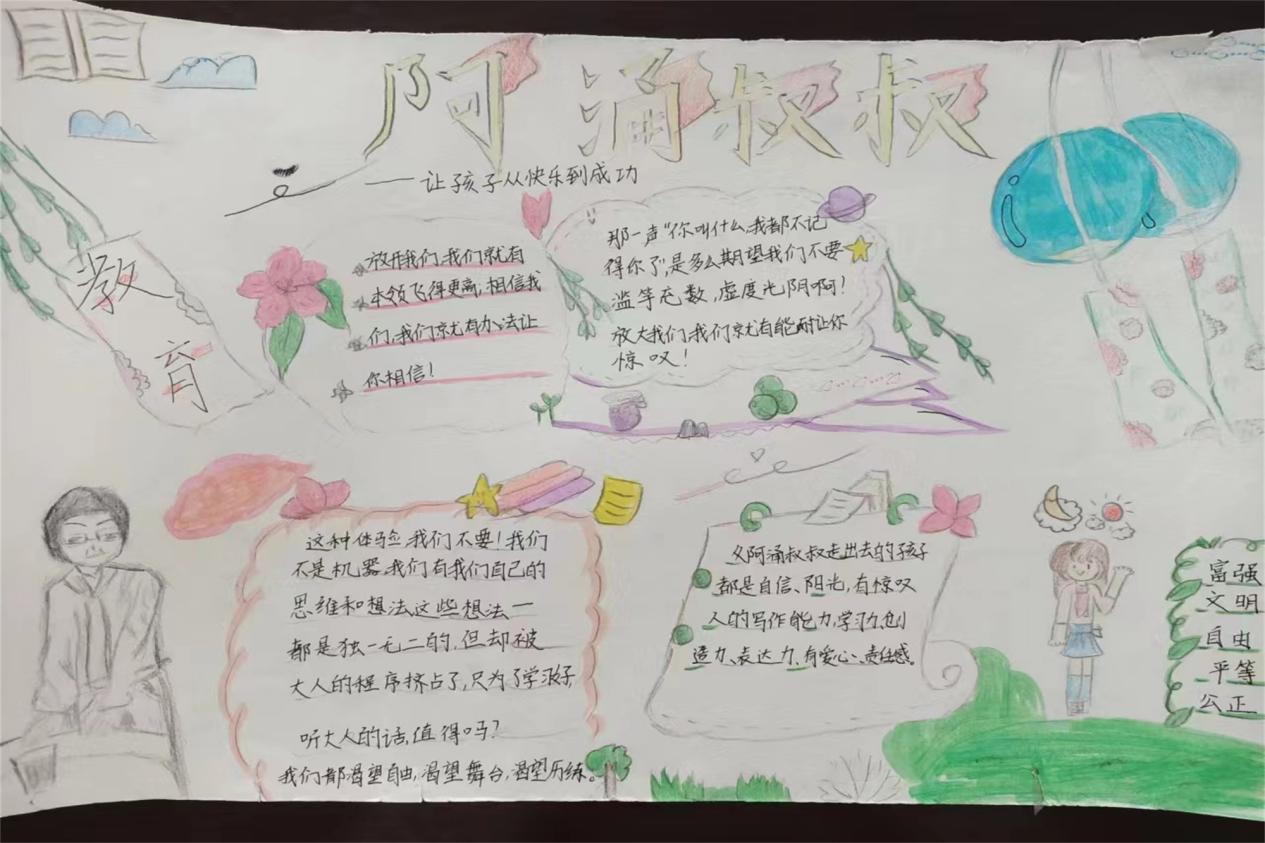 阿涌叔叔
——让孩子从快乐到成功
教
育
放开我们,我们就有
本领飞得更高,相信我
们,我们就有办法让
你相信!
那一声“你叫什么,我都不记
得你了”,是多么期望我们不要
滥等充数,虚度光阴啊!
放大我们,我们就有能耐让你
惊叹!
这种体验,我们不要!我们
不是机器,我们有我们自己的
思维和想法,这些想法一
都是独一无二的,但却被
大人的程序挤占了,只为了学
听大人的话,值得吗?
我们都渴望自由,渴望舞台,渴望历练。
阿涌叔叔走出去的孩子
都是自信、阳光,有惊叹
人的写作能力,学习力,创
造力、表达力、有爱心、责任感。
富强
文明
自由
平等
公正